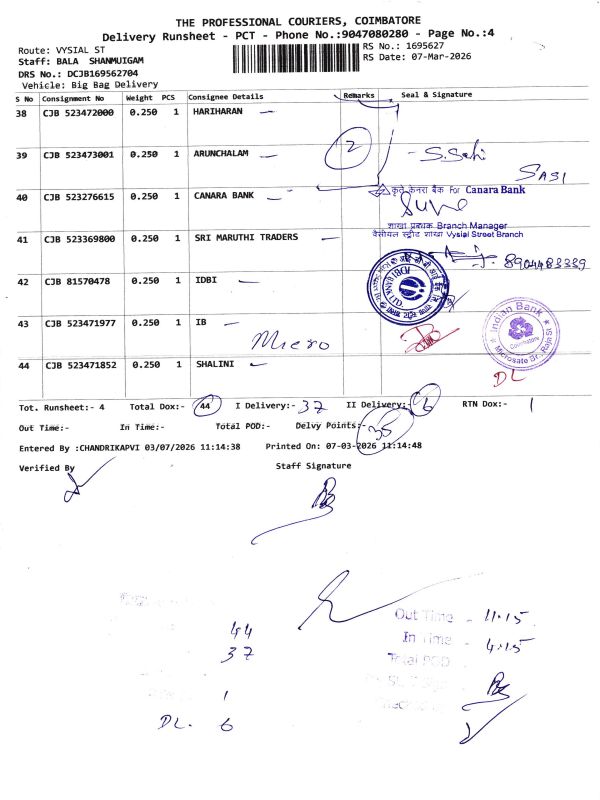 THE PROFESSIONAL COURIERS, COIMBATORE
Delivery Runsheet - PCT - Phone No.:9047080280 - Page No.:4
Route: VYSIAL ST
RS No.: 1695627
Staff: BALA SHANMUIGAM
RS Date: 07-Mar-2026
DRS No.: DCJB169562704
Vehicle: Big Bag Delivery
S No Consignment No Weight PCS Consignee Details Remarks Seal & Signature
38 CJB 523472000 0.250 1 HARIHARAN
2
39 CJB 523473001 0.250 1 ARUNCHALAM
SASI
40 CJB 523276615 0.250 1 CANARA BANK
कृते केनरा बैंक For Canara Bank
शाखा प्रबंधक Branch Manager
वैसीयल स्ट्रीट शाखा Vysial Street Branch
41 CJB 523369800 0.250 1 SRI MARUTHI TRADERS
8904483339
42 CJB 81570478 0.250 1 IDBI
IDBI BANK LTD.
43 CJB 523471977 0.250 1 IB
Micro
Indian Bank
Coimbatore
44 CJB 523471852 0.250 1 SHALINI
DL
Tot. Runsheet:- 4 Total Dox:- 44 I Delivery:- 37 II Delivery:- 6 RTN Dox:- 1
Out Time:- In Time:- Total POD:- Delvy Points:- 35
Entered By :CHANDRIKAPVI 03/07/2026 11:14:38 Printed On: 07-03-2026 11:14:48
Verified By Staff Signature
44
37
1
DL. 6
Out Time - 11.15
In Time - 4.15
Total POD